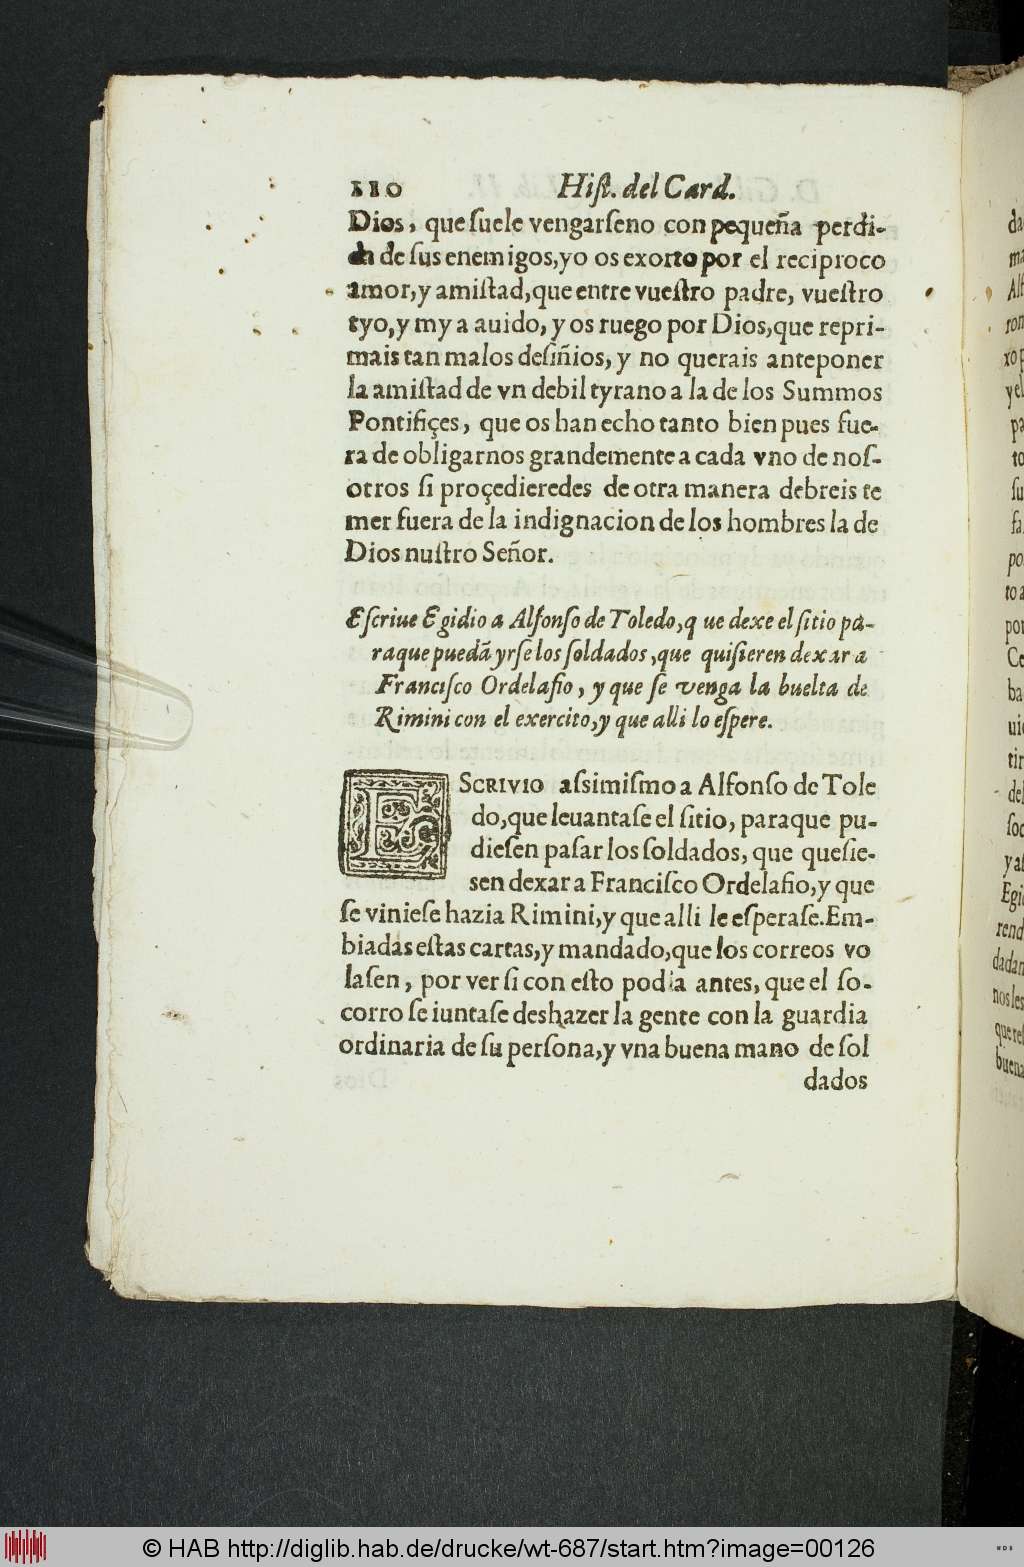 110 Hiſt. del Card.
Dios, que ſuele vengarſeno con pequeña perdi-
da de ſus enemigos, yo os exorto por el reciproco
amor, y amiſtad, que entre vueſtro padre, vueſtro
tyo, y my a auido, y os ruego por Dios, que repri-
mais tan malos deſiñios, y no querais anteponer
la amiſtad de vn debil tyrano a la de los Summos
Pontifiçes, que os han echo tanto bien pues fue-
ra de obligarnos grandemente a cada vno de noſ-
otros ſi proçedieredes de otra manera debreis te
mer fuera de la indignacion de los hombres la de
Dios nuſtro Señor.
Eſcriue Egidio a Alfonſo de Toledo, q ue dexe el ſitio pa-
raque puedã yrſe los ſoldados, que quiſieren dexar a
Franciſco Ordelafio, y que ſe venga la buelta de
Rimini con el exercito, y que alli lo eſpere.
ESCRIVIO aſsimiſmo a Alfonſo de Tole
do, que leuantaſe el ſitio, paraque pu-
dieſen paſar los ſoldados, que queſie-
sen dexar a Franciſco Ordelafio, y que
ſe vinieſe hazia Rimini, y que alli le eſperaſe. Em-
biadas eſtas cartas, y mandado, que los correos vo
laſen, por ver ſi con eſto podia antes, que el ſo-
corro ſe iuntaſe deshazer la gente con la guardia
ordinaria de ſu perſona, y vna buena mano de ſol
dados
© HAB http://diglib.hab.de/drucke/wt-687/start.htm?image=00126